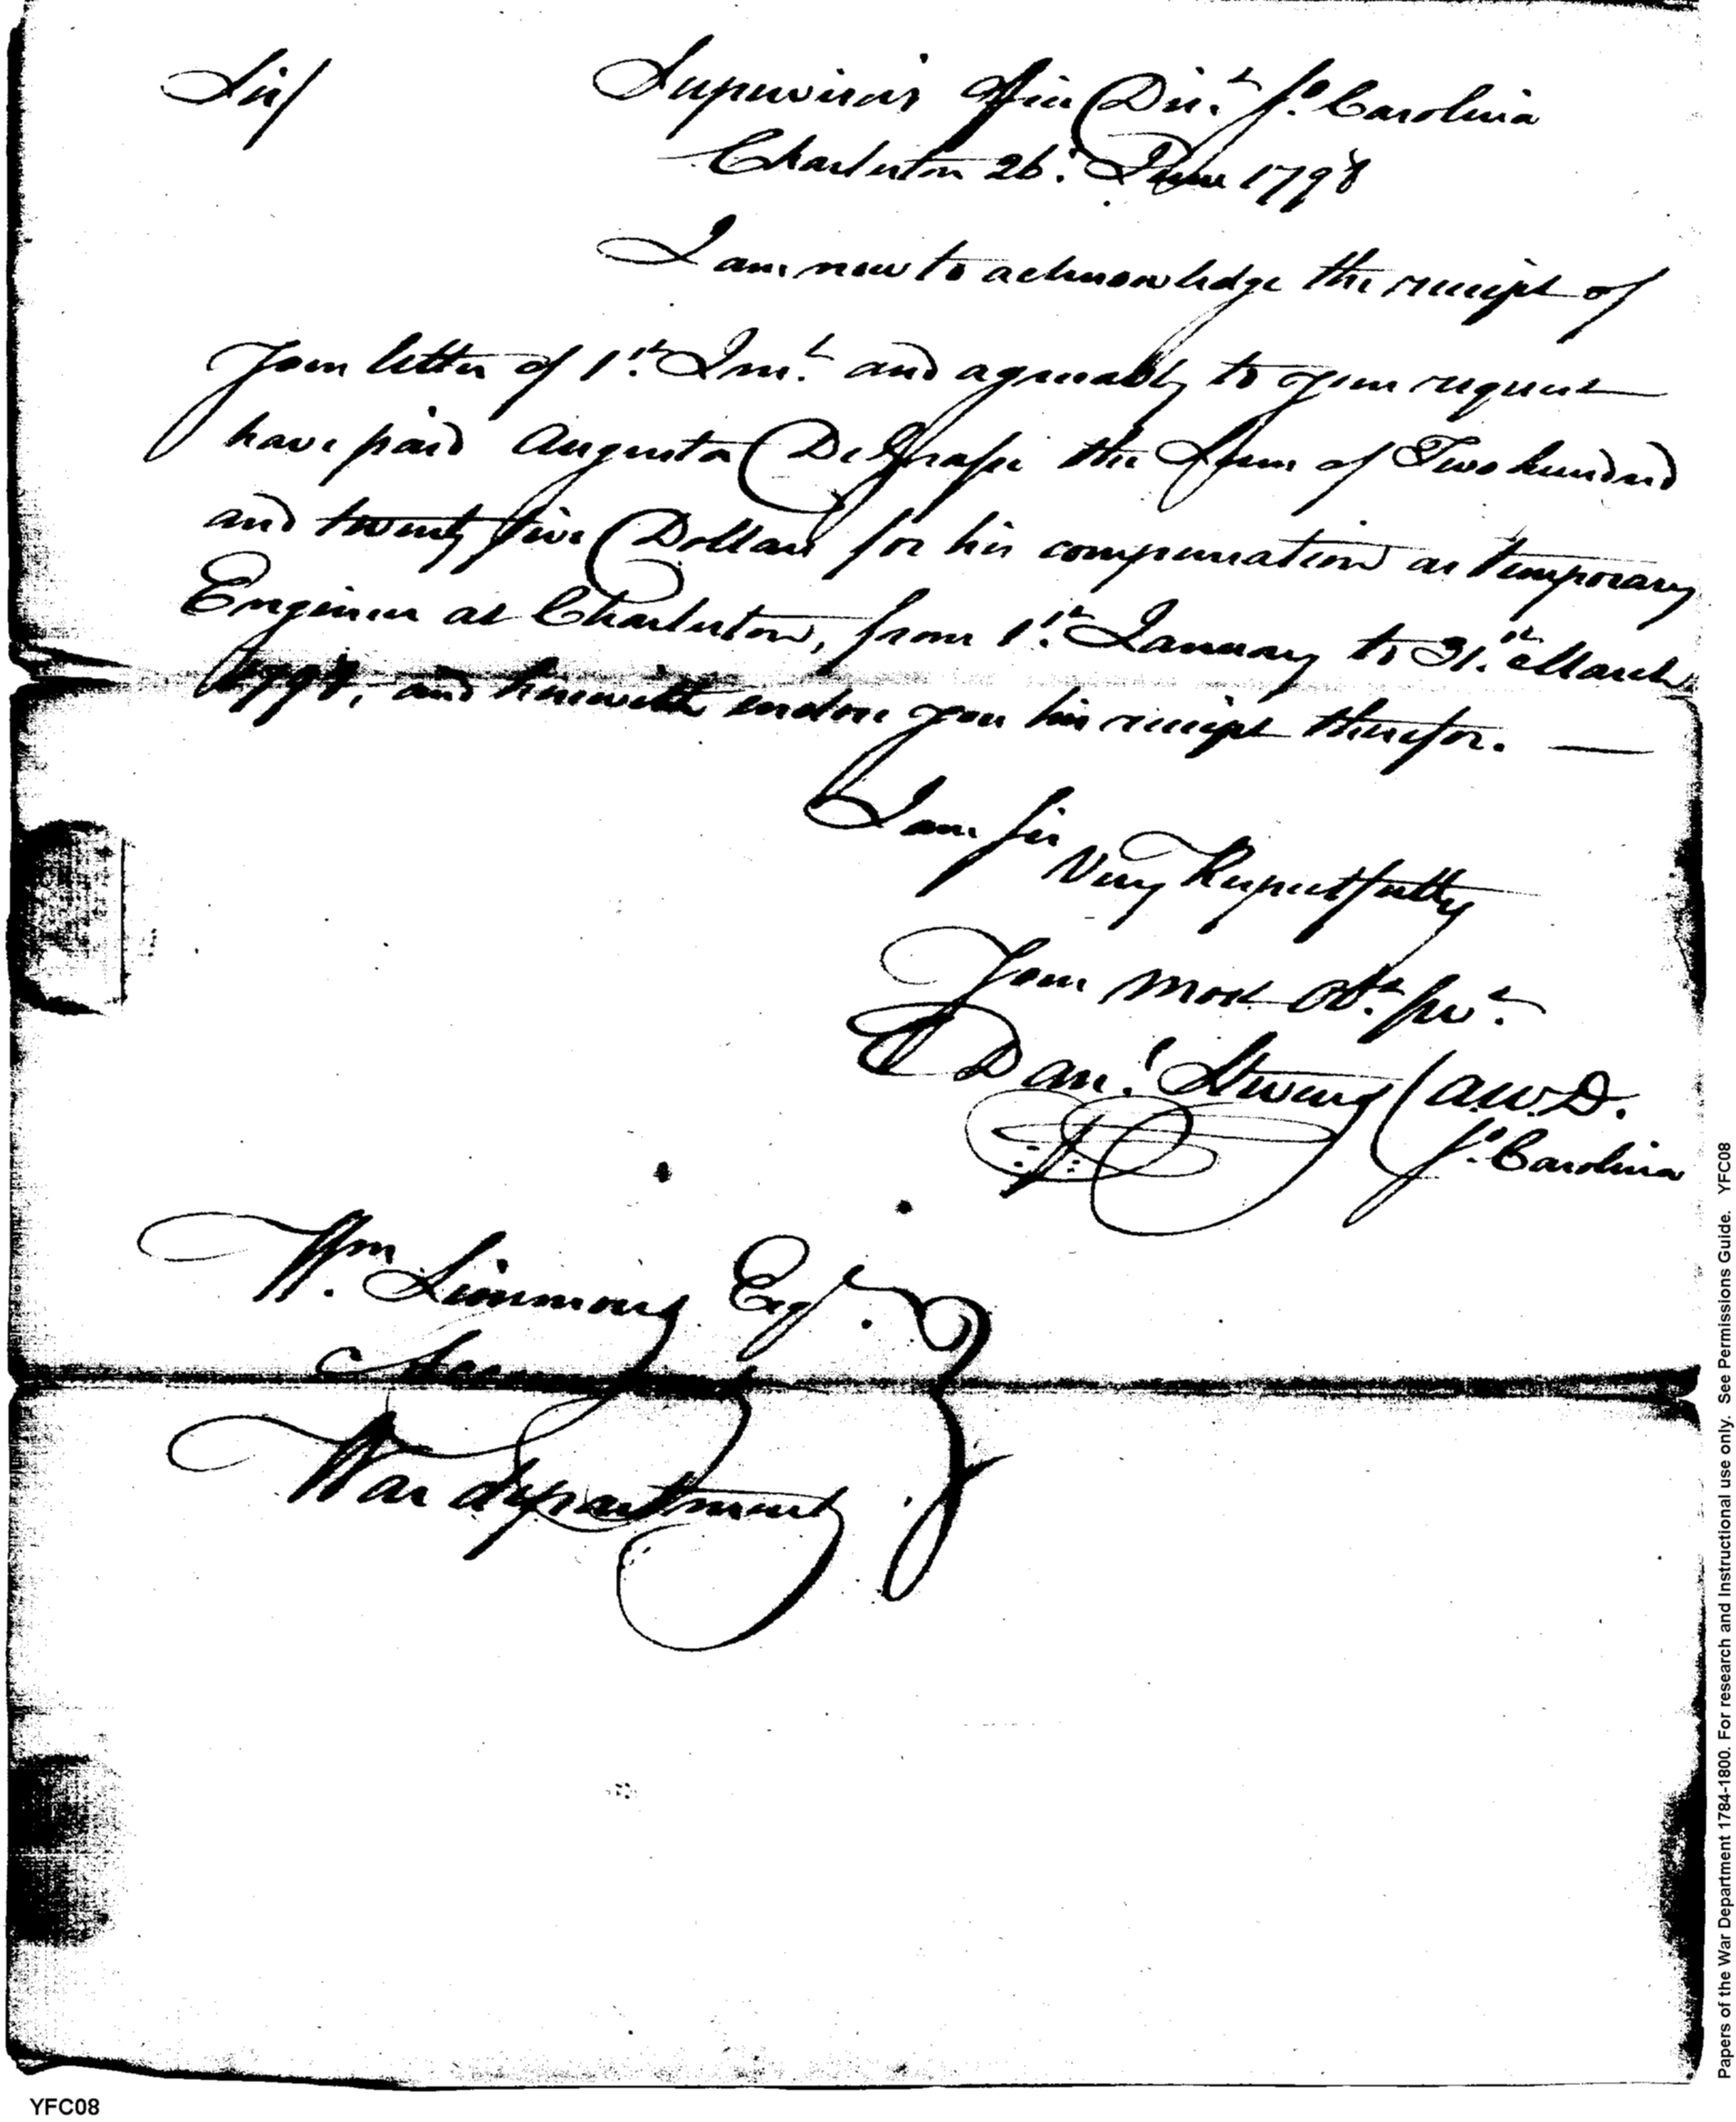 Sir/
Supervisor's Office Dist. So. Carolina
Charleston 26. June 1798
I am now to acknowledge the receipt of
Your letter of 1st. Inst. and agreeably to your request
have paid Augusta DeGrasse the Sum of Two hundred
and twenty five Dollars for his compensation as temporary
Engineer at Charleston, from 1st. January to 31st. March
1798, and herewith endorse you his receipt therefor. —
I am Sir
Very Respectfully
Your most Obt. Svt.
Danl. Stevens A.W.D.
So. Carolina
Wm. Simmons Esqr.
War department
Papers of the War Department 1784-1800. For research and Instructional use only. See Permissions Guide. YFC08
YFC08